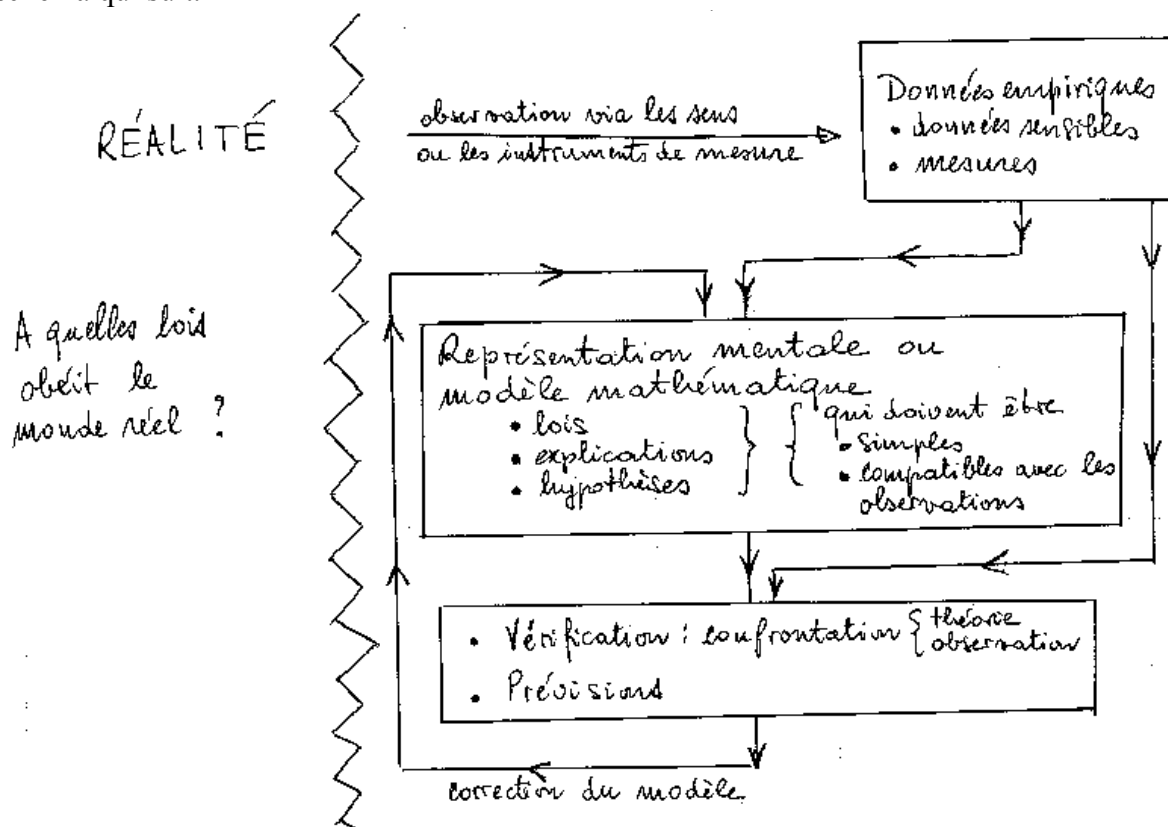 RÉALITÉ
observation via les sens
ou les instruments de mesure
Données empiriques
• données sensibles
• mesures
A quelles lois
obéit le
monde réel ?
Représentation mentale ou
modèle mathématique
• lois
• explications
• hypothèses
qui doivent être
• simples
• compatibles avec les
observations
• Vérification : confrontation { théorie
observation
• Prévisions
correction du modèle